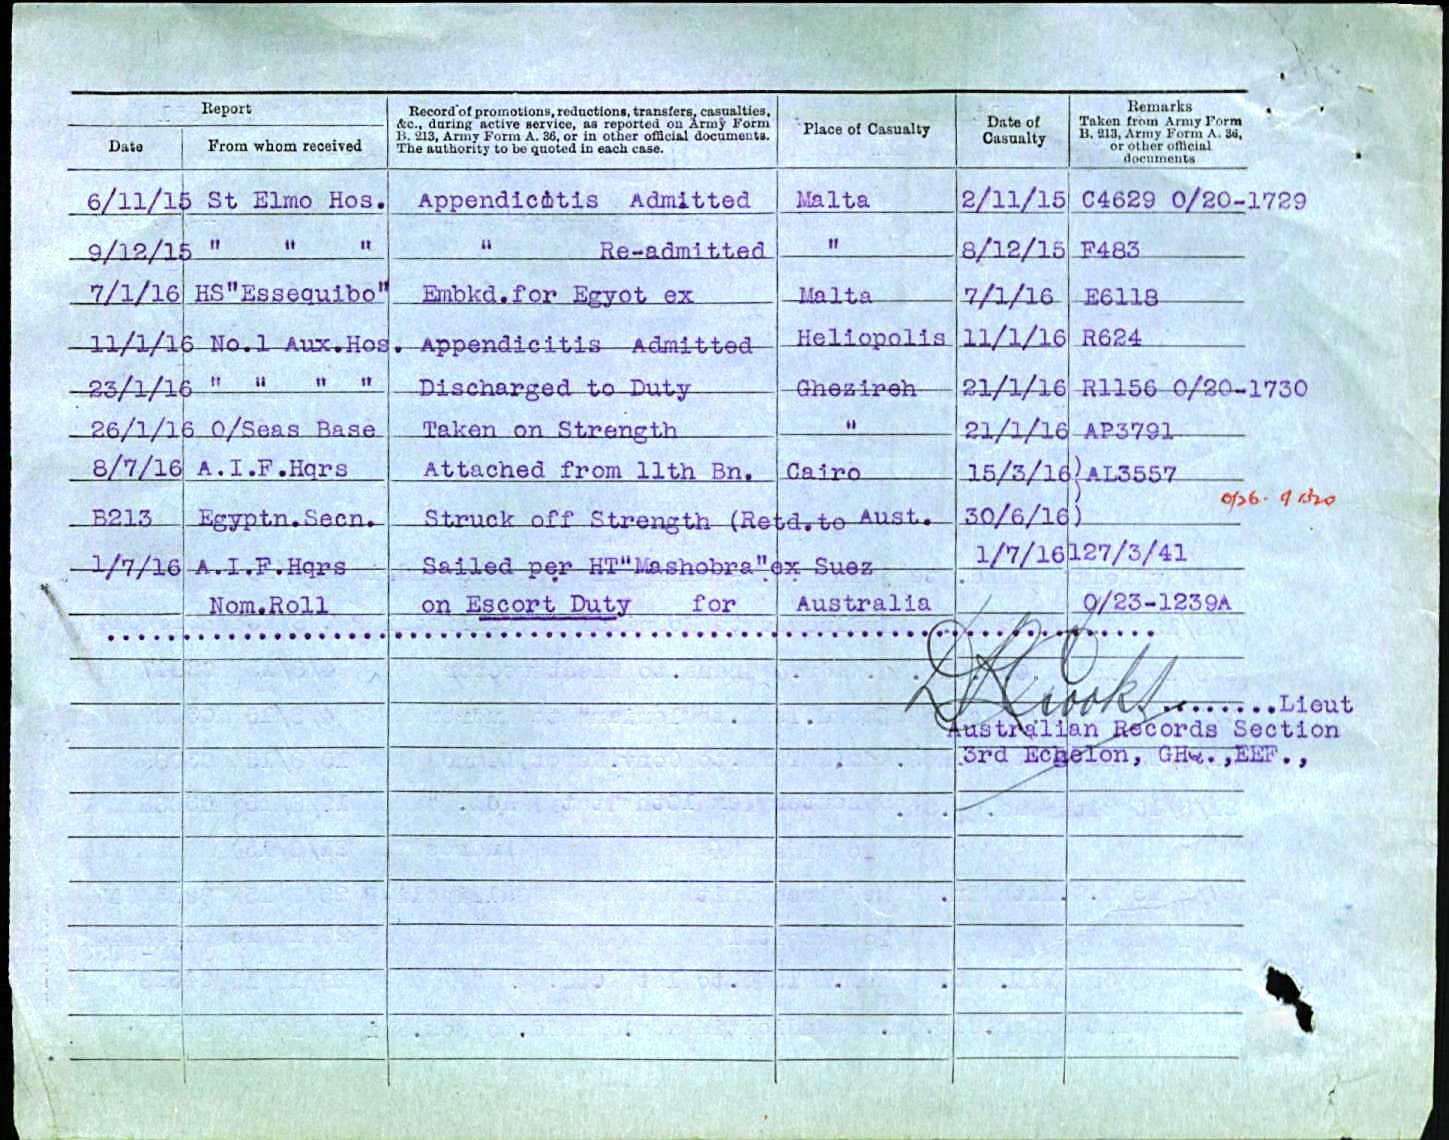 Report
Date
From whom received
Record of promotions, reductions, transfers, casualties,
&c., during active service, as reported on Army Form
B. 213, Army Form A. 36, or in other official documents.
The authority to be quoted in each case.
Place of Casualty
Date of
Casualty
Remarks
Taken from Army Form
B. 213, Army Form A. 36,
or other official
documents
6/11/15 St Elmo Hos. Appendicitis Admitted Malta 2/11/15 C4629 0/20-1729
9/12/15 " " " " Re-admitted " 8/12/15 F483
7/1/16 HS"Essequibo" Embkd.for Egyot ex Malta 7/1/16 E6118
11/1/16 No.1 Aux.Hos. Appendicitis Admitted Heliopolis 11/1/16 R624
23/1/16 " " " " Discharged to Duty Ghezireh 21/1/16 R1156 0/20-1730
26/1/16 O/Seas Base Taken on Strength " 21/1/16 AP3791
8/7/16 A.I.F.Hqrs Attached from 11th Bn. Cairo 15/3/16) AL3557
B213 Egyptn.Secn. Struck off Strength (Retd.to Aust. 30/6/16)
1/7/16 A.I.F.Hqrs Sailed per HT"Mashobra"ex Suez 1/7/16 127/3/41
Nom.Roll on Escort Duty for Australia 0/23-1239A
Crooks ........Lieut
Australian Records Section
3rd Echelon, GHQ.,EEF.,